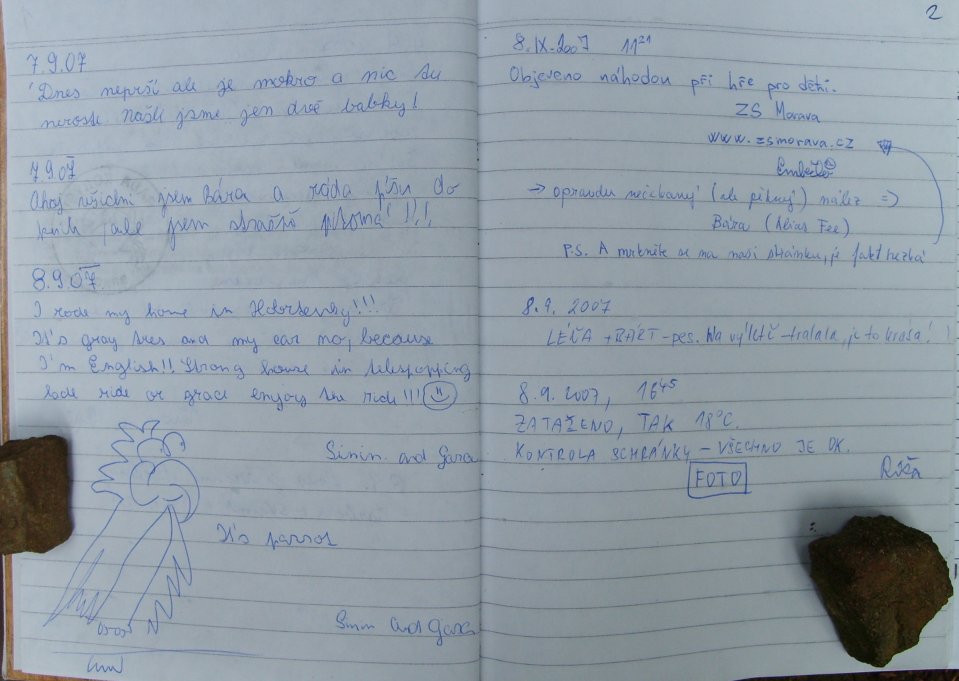 7.9.07
Dnes neprší ale je mokro a nic tu
neroste. Našli jsme jen dvě babky!
7.9.07
Ahoj jsem Bára a ráda píšu do
jsem strašně !!!
8.9.07
I rode my home in !!!
It's gray and my car no, because
I'm English!! Strong house in
ride or grace enjoy the ride!!!
Simin. and Gara
It's parrot
Simin and Gara
2
8.IX.2007 11²¹
Objeveno náhodou při hře pro děti.
ZS Morava
www.zsmorava.cz
→ opravdu nečekaný (ale pěkný) nález =)
Bára (Alias Fee)
P.S. A mrkněte se na naši stránku, je fakt hezká
8.9. 2007
+ BÁRT - pes. Na výletě - tralala, je to krása!!
8.9.2007, 16⁴⁵
ZATAŽENO, TAK 18°C.
KONTROLA SCHRÁNKY - VŠECHNO JE OK.
FOTO
Ríša